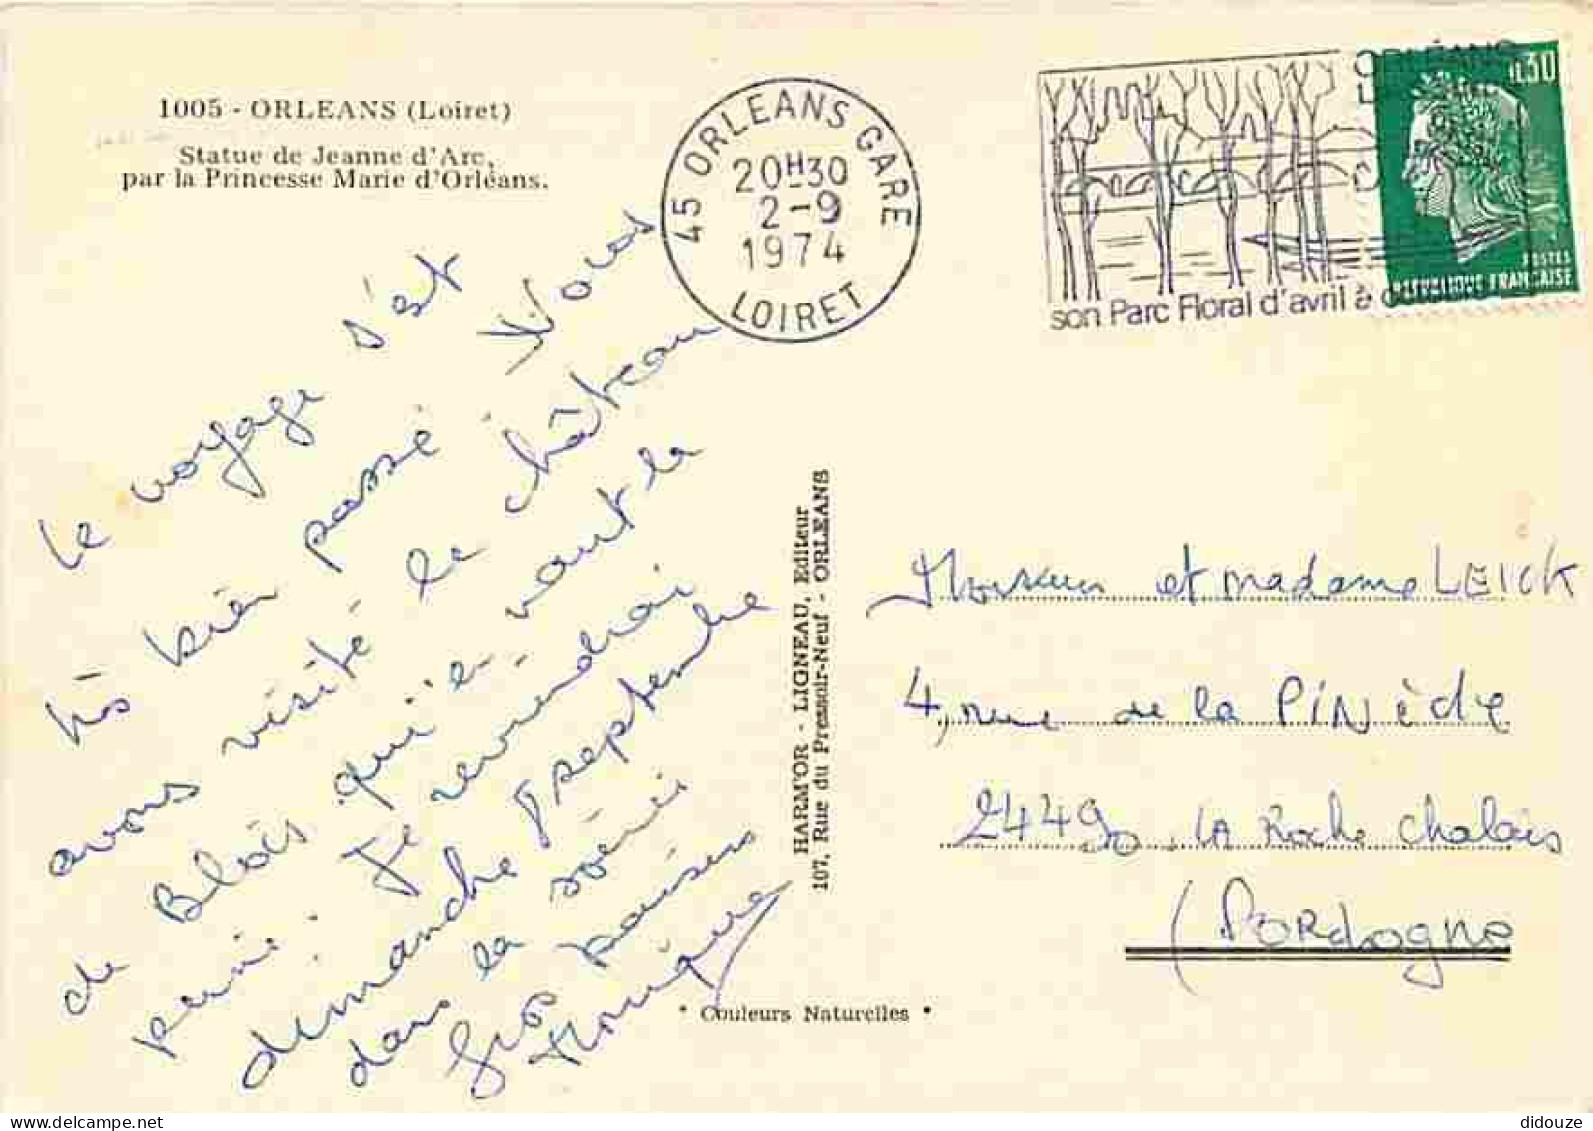 1005 - ORLEANS (Loiret)
Statue de Jeanne d'Arc,
par la Princesse Marie d'Orléans.
45 ORLEANS GARE
20H30
2-9
1974
LOIRET
ORLÉANS
son Parc Floral d'avril à
0.30
POSTES
REPUBLIQUE FRANÇAISE
Le voyage s'est
très bien passé. Nous
avons visité le château
de Blois qui en vaut la
peine. Je reviendrai
dimanche 8 septembre
dans la soirée
Gros baisers
Monique
HARM'OR - LIGNEAU, Editeur
107, Rue du Pressoir-Neuf - ORLEANS
Monsieur et madame LEICK
4, rue de la PINède
24490 LA Roche Chalais
(DORdogne
* Couleurs Naturelles *
delcampe.net
didouze